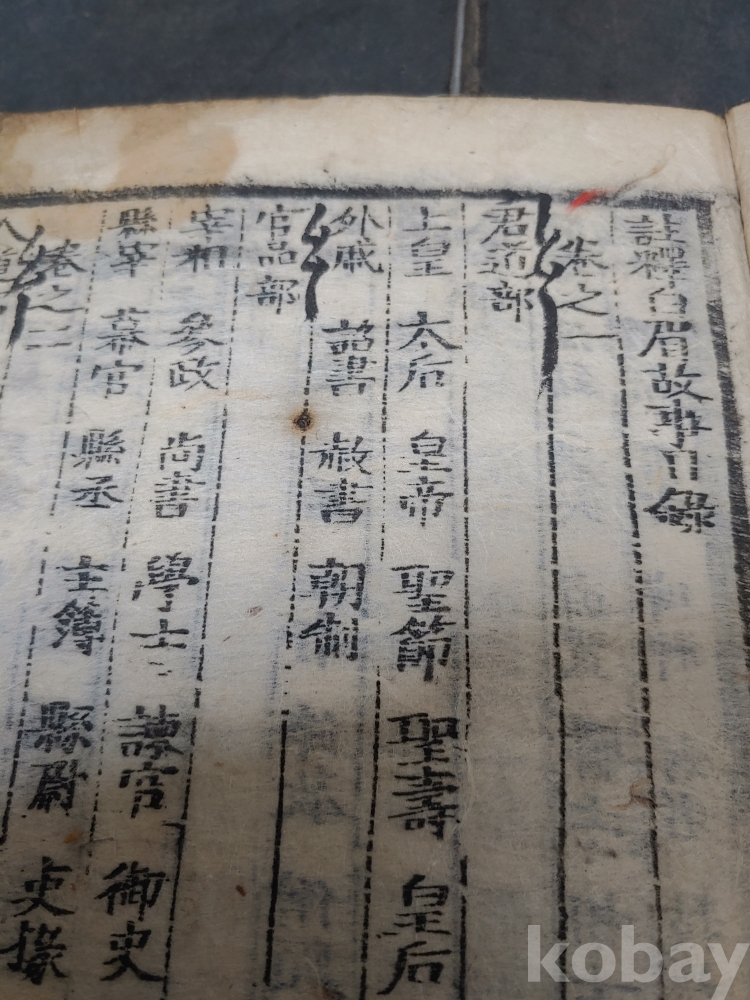 註釋白眉故事目錄
卷之一
君道部
上皇 太后 皇帝 聖節 聖壽 皇后
外戚 詔書 赦書 朝制
官品部
宰相 參政 尚書 學士 諫官 御史
縣宰 幕官 縣丞 主簿 縣尉 吏掾
卷之二
kobay